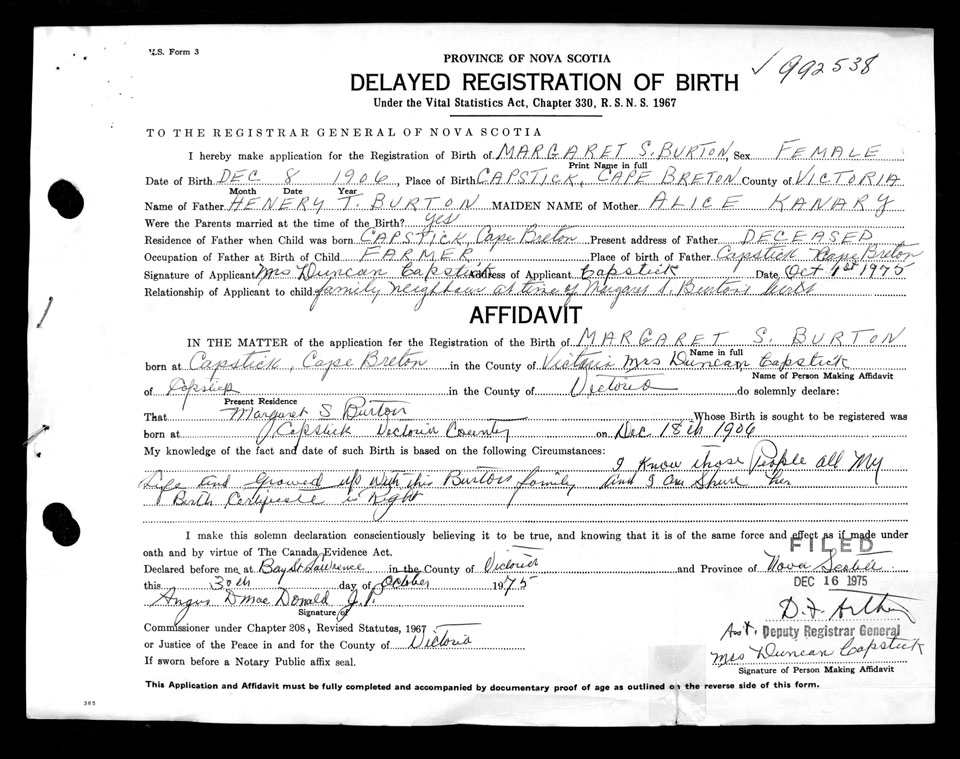 V.S. Form 3
PROVINCE OF NOVA SCOTIA
✓ 992538
DELAYED REGISTRATION OF BIRTH
Under the Vital Statistics Act, Chapter 330, R. S. N. S. 1967
TO THE REGISTRAR GENERAL OF NOVA SCOTIA
I hereby make application for the Registration of Birth of MARGARET S. BURTON, Sex FEMALE
Print Name in full
Date of Birth DEC 8 1906, Place of Birth CAPSTICK, CAPE BRETON County of VICTORIA
Month Date Year
Name of Father HENERY T. BURTON MAIDEN NAME of Mother ALICE KANARY
Were the Parents married at the time of the Birth? yes
Residence of Father when Child was born CAPSTICK, Cape Breton Present address of Father DECEASED
Occupation of Father at Birth of Child FARMER Place of birth of Father Capstick Cape Breton
Signature of Applicant Mrs Duncan Capstick Address of Applicant Capstick Date Oct 1st 1975
Relationship of Applicant to child family neighbour at time of Margaret S. Burton's birth
AFFIDAVIT
IN THE MATTER of the application for the Registration of the Birth of MARGARET S. BURTON
Name in full
born at Capstick, Cape Breton in the County of Victoria Mrs Duncan Capstick
Name of Person Making Affidavit
of Capstick in the County of Victoria do solemnly declare:
Present Residence
That Margaret S Burton Whose Birth is sought to be registered was
born at Capstick Victoria County on Dec 18th 1906
My knowledge of the fact and date of such Birth is based on the following Circumstances:
I Know those People all My
Life And Growed up With this Burton family And I Am Shure her
Birth Certificate is Right
I make this solemn declaration conscientiously believing it to be true, and knowing that it is of the same force and effect as if made under
oath and by virtue of The Canada Evidence Act.
FILED
Declared before me at Bay St Lawrence in the County of Victoria and Province of Nova Scotia
this 30th day of October 1975
DEC 16 1975
Angus D Mac Donald J.P
Signature of
Commissioner under Chapter 208, Revised Statutes, 1967
Asst. Deputy Registrar General
or Justice of the Peace in and for the County of Victoria
Mrs Duncan Capstick
If sworn before a Notary Public affix seal.
Signature of Person Making Affidavit
This Application and Affidavit must be fully completed and accompanied by documentary proof of age as outlined on the reverse side of this form.
385